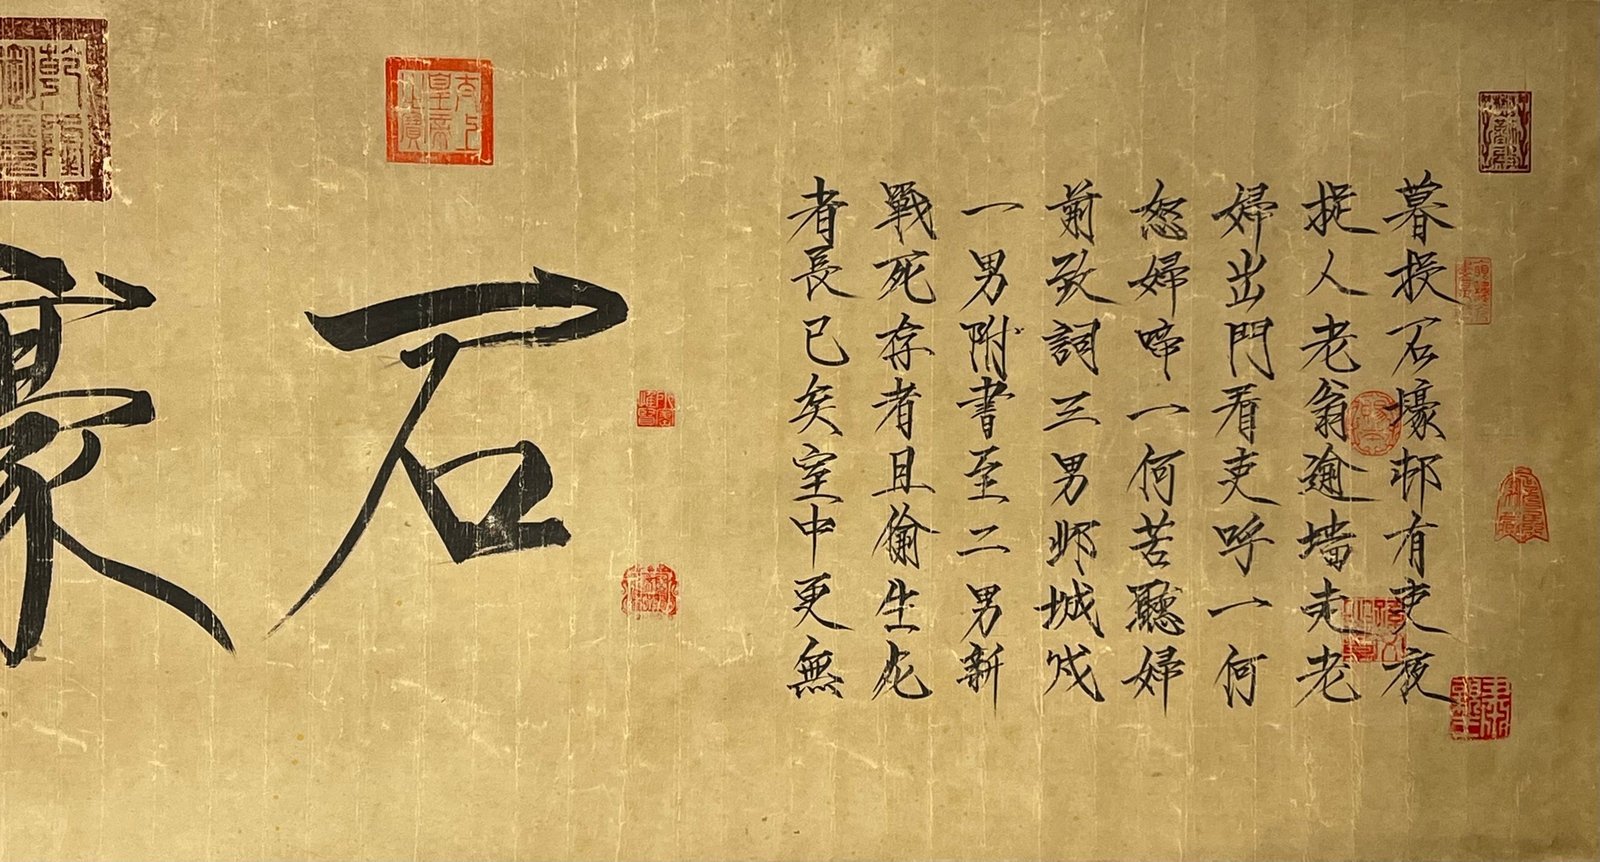 暮投石壕邨有吏夜
捉人老翁逾墙走老
婦出門看吏呼一何
怒婦啼一何苦聽婦
前致詞三男邺城戍
一男附書至二男新
戰死存者且偷生死
者長已矣室中更無
石
太上皇帝之寶